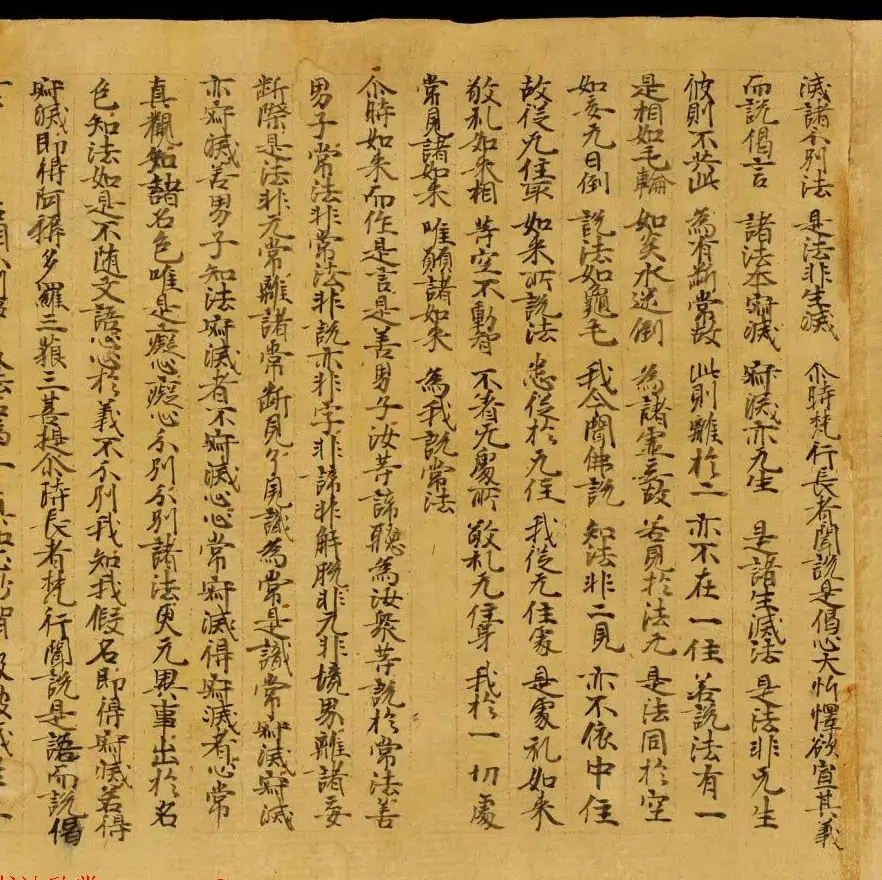 滅諸分別法 是法非生滅 尒時梵行長者聞說是偈心大忻懌欲宣其義
而說偈言 諸法本寂滅 寂滅亦无生 是諸生滅法 是法非无生
彼則不共此 為有断常故 此則離於二 亦不在一住 若說法有一
是相如毛輪 如炎水迷倒 為諸虛妄故 若見於法无 是法同於空
如盲无日倒 說法如龜毛 我今聞佛說 知法非二見 亦不依中住
故從无住取 如来所說法 悉從於无住 我從无住處 是處礼如来
敬礼如来相 等空不動智 不著无處所 敬礼无住身 我於一切處
常見諸如来 唯願諸如来 為我說常法
尒時如来而作是言是善男子汝等諦聽為汝衆等說於常法善
男子常法非常法非說亦非字非諦非解脫非无非境界離諸妄
断際是法非无常離諸常断見了見識為常是識常寂滅寂滅
亦寂滅善男子知法寂滅者不寂滅心心常寂滅得寂滅者心常
真觀知諸名色唯是癡心癡心分別分別諸法更无異事出於名
色知法如是不随文語心心於義不分別我知我假名即得寂滅若得
寂滅即得阿耨多羅三藐三菩提尒時長者梵行聞說是語而說偈